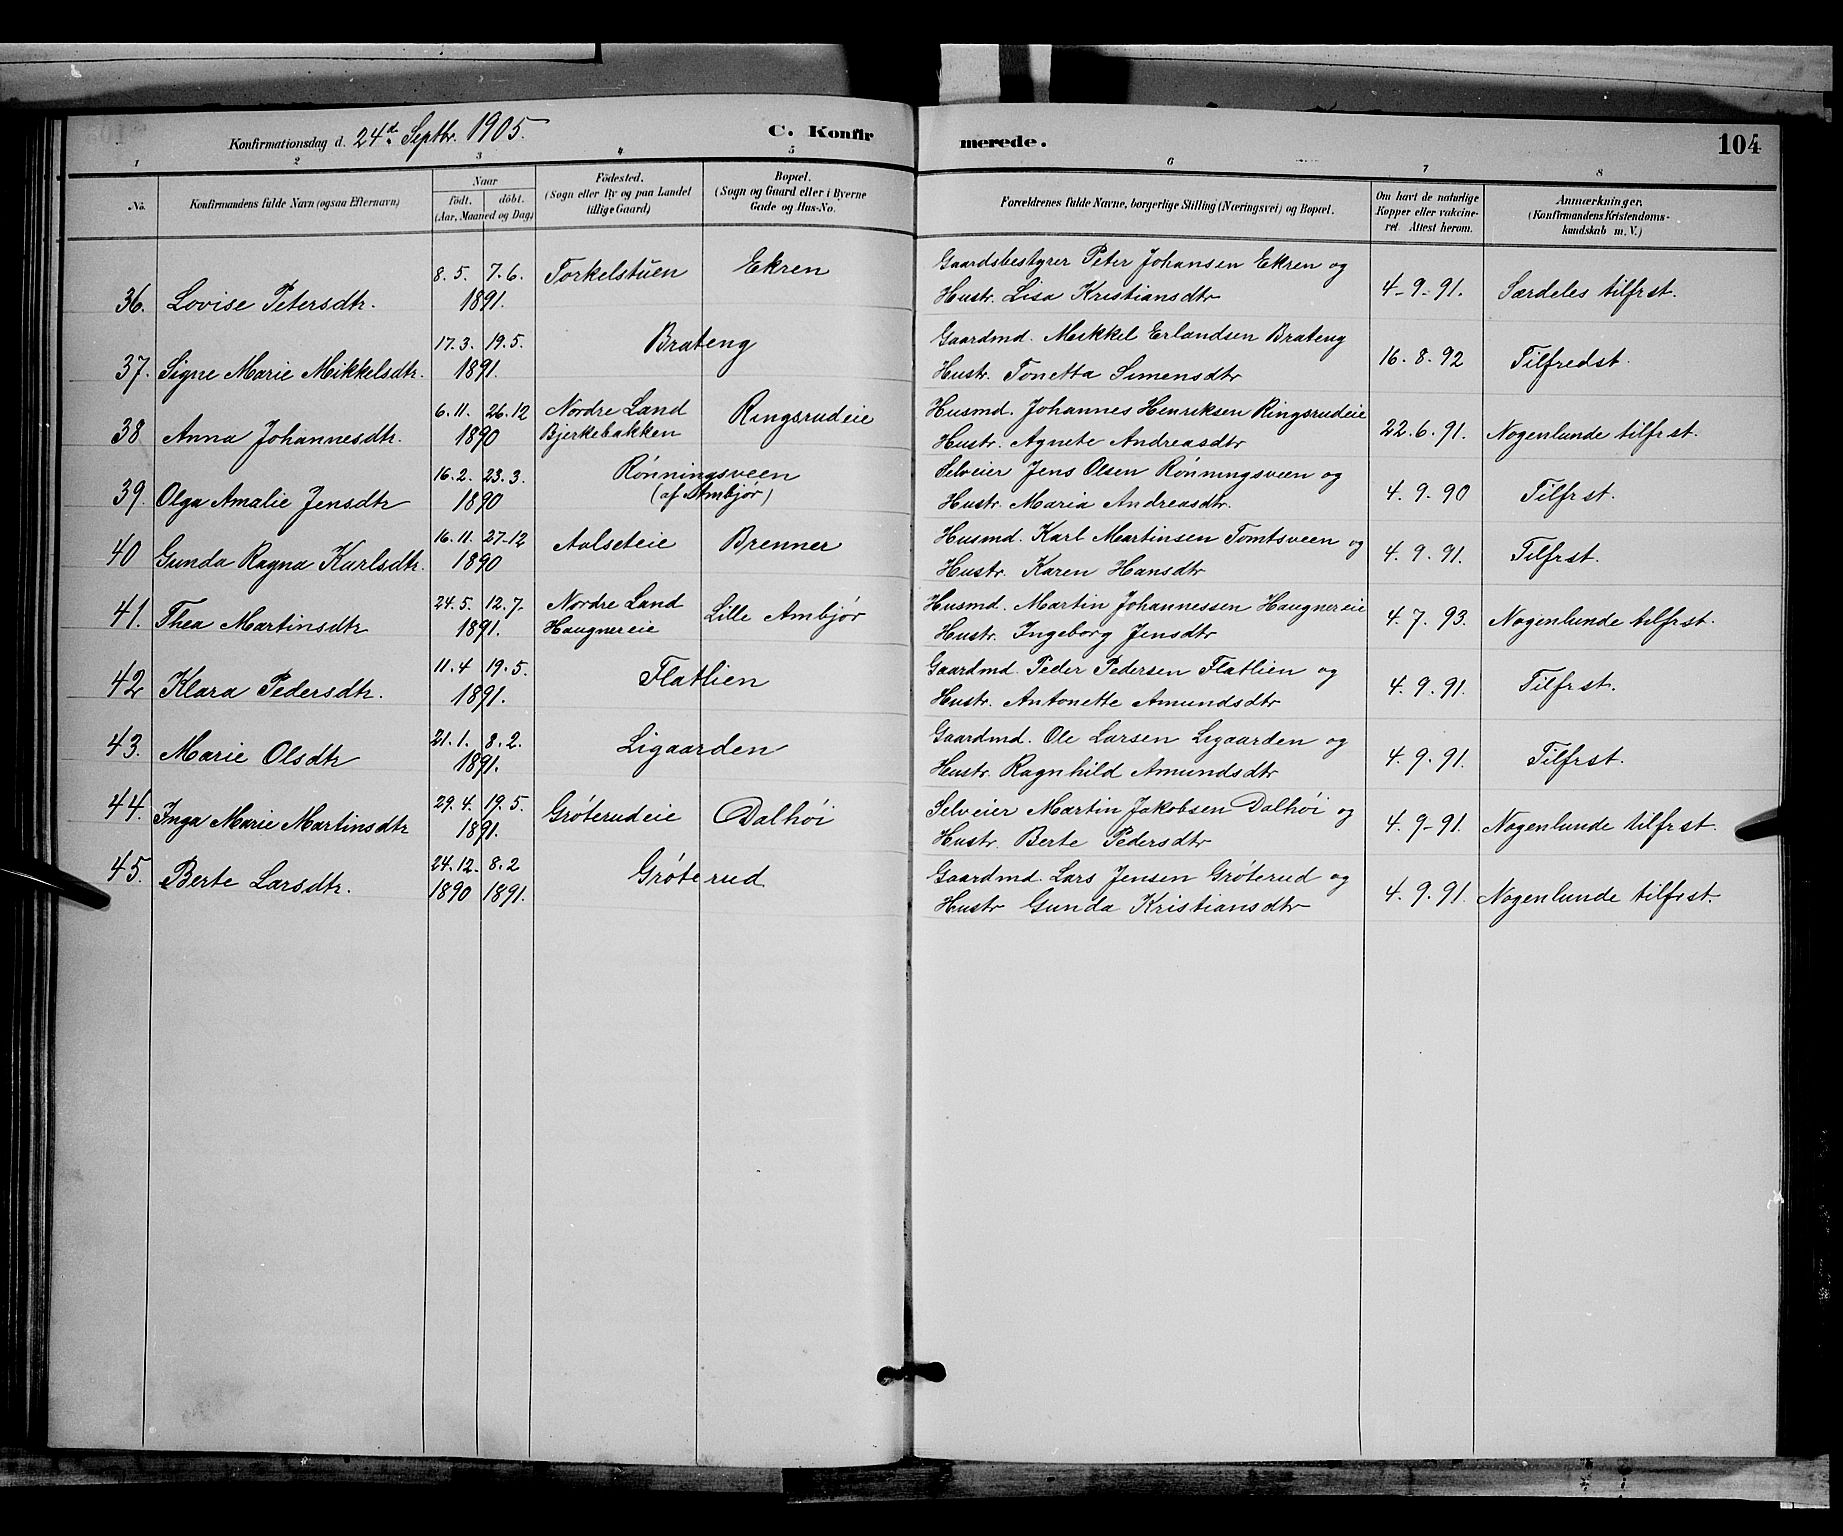 Konfirmationsdag d. 24d. Septbr. 1905. C. Konfirmerede. 104
1 2 3 4 5 6 7 8
No. Konfirmandens fulde Navn (ogsaa Efternavn) Naar födt. döbt. (Aar, Maaned og Dag) Födested. (Sogn eller By og paa Landet tillige Gaard) Bopæl. (Sogn og Gaard eller i Byerne Gade og Hus-No. Forældrenes fulde Navne, borgerlige Stilling (Næringsvei) og Bopæl. Om havt de naturlige Kopper eller vakcineret. Attest herom. Anmærkninger. (Konfirmandens Kristendomskundskab m. V.)
8.5. 7.6. Torkelstuen Ekren Gaardsbestyrer Peter Johansen Ekren og
36. Lovise Petersdtr. 1891. Hustr. Lisa Kristiansdtr 4-9-91. Særdeles tilfrst.
17.3. 19.5. Brateng Gaardmd. Mikkel Erlandsen Brateng
37. Signe Marie Mikkelsdtr. 1891. Hustr. Tonetta Simensdtr 16.8.92 Tilfredst.
6.11. 26.12 Nordre Land Ringsrudeie Husmd. Johannes Henriksen Ringsrudeie
38 Anna Johannesdtr. 1890 Bjerkebakken Hustr. Agnete Andreasdtr 22.6.91. Nogenlunde tilfrst.
16.2. 23.3. Rönningsveen Selveier Jens Olsen Rönningsveen og
39. Olga Amalie Jensdtr 1890 (af Ambjør) Hustr. Maria Andreasdtr. 4.9.90 Tilfrst.
16.11. 27.12 Aalseteie Brenner Husmd. Karl Martinsen Tomtsveen og
40 Gunda Ragna Karlsdtr. 1890 Hustr. Karen Hansdtr 4.9.91. Tilfrst.
24.5. 12.7. Nordre Land Lille Ambjör Husmd. Martin Johannessen Haugnereie
41. Thea Martinsdtr 1891. Haugnereie Hustr. Ingeborg Jensdtr 4.7.93. Nogenlunde tilfrst.
11.4 19.5. Flatlien Gaardmd. Peder Pedersen Flatlien og
42 Klara Pedersdtr. 1891. Hustr. Antonette Amundsdtr 4.9.91. Tilfrst.
21.1. 8.2. Ligaarden Gaardmd. Ole Larsen Ligaarden og
43. Marie Olsdtr 1891. Hustr. Ragnhild Amundsdtr 4.9.91. Tilfrst.
29.4. 19.5. Gröterudeie Dalhöi Selveier Martin Jakobsen Dalhöi og
44. Inga Marie Martinsdtr 1891. Hustr. Berte Pedersdtr 4.9-91. Nogenlunde tilfrst.
24.12. 8.2 Gröterud Gaardmd. Lars Jensen Gröterud og
45. Berte Larsdtr. 1890 1891. Hustr Gunda Kristiansdtr 4.9.91. Nogenlunde tilfrst.